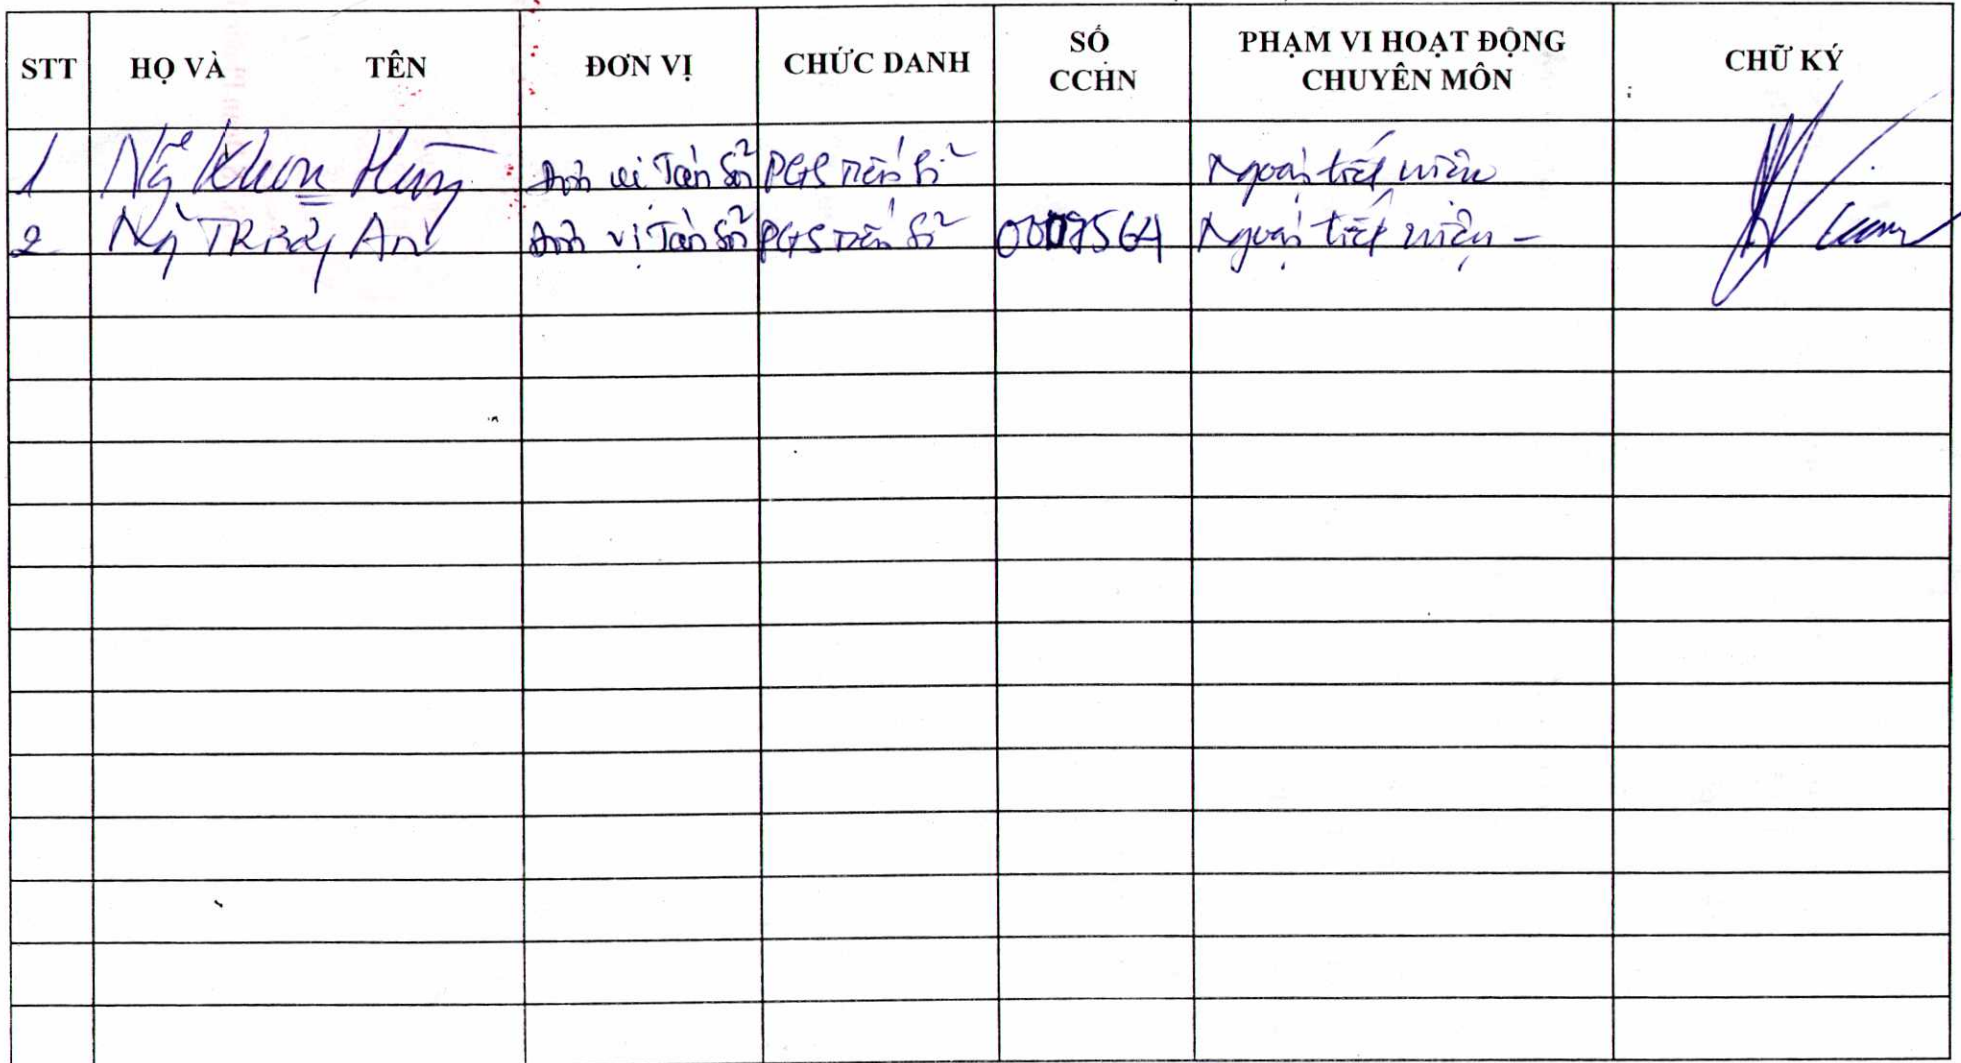 STT HỌ VÀ TÊN ĐƠN VỊ CHỨC DANH SỐ CCHN PHẠM VI HOẠT ĐỘNG CHUYÊN MÔN CHỮ KÝ
1 Hùng đơn vị Tán Sỏi PGS Tiến Sĩ Ngoại tiết niệu
2 Ng Trường An đơn vị Tán Sỏi PGS Tiến Sĩ Ngoại tiết niệu -